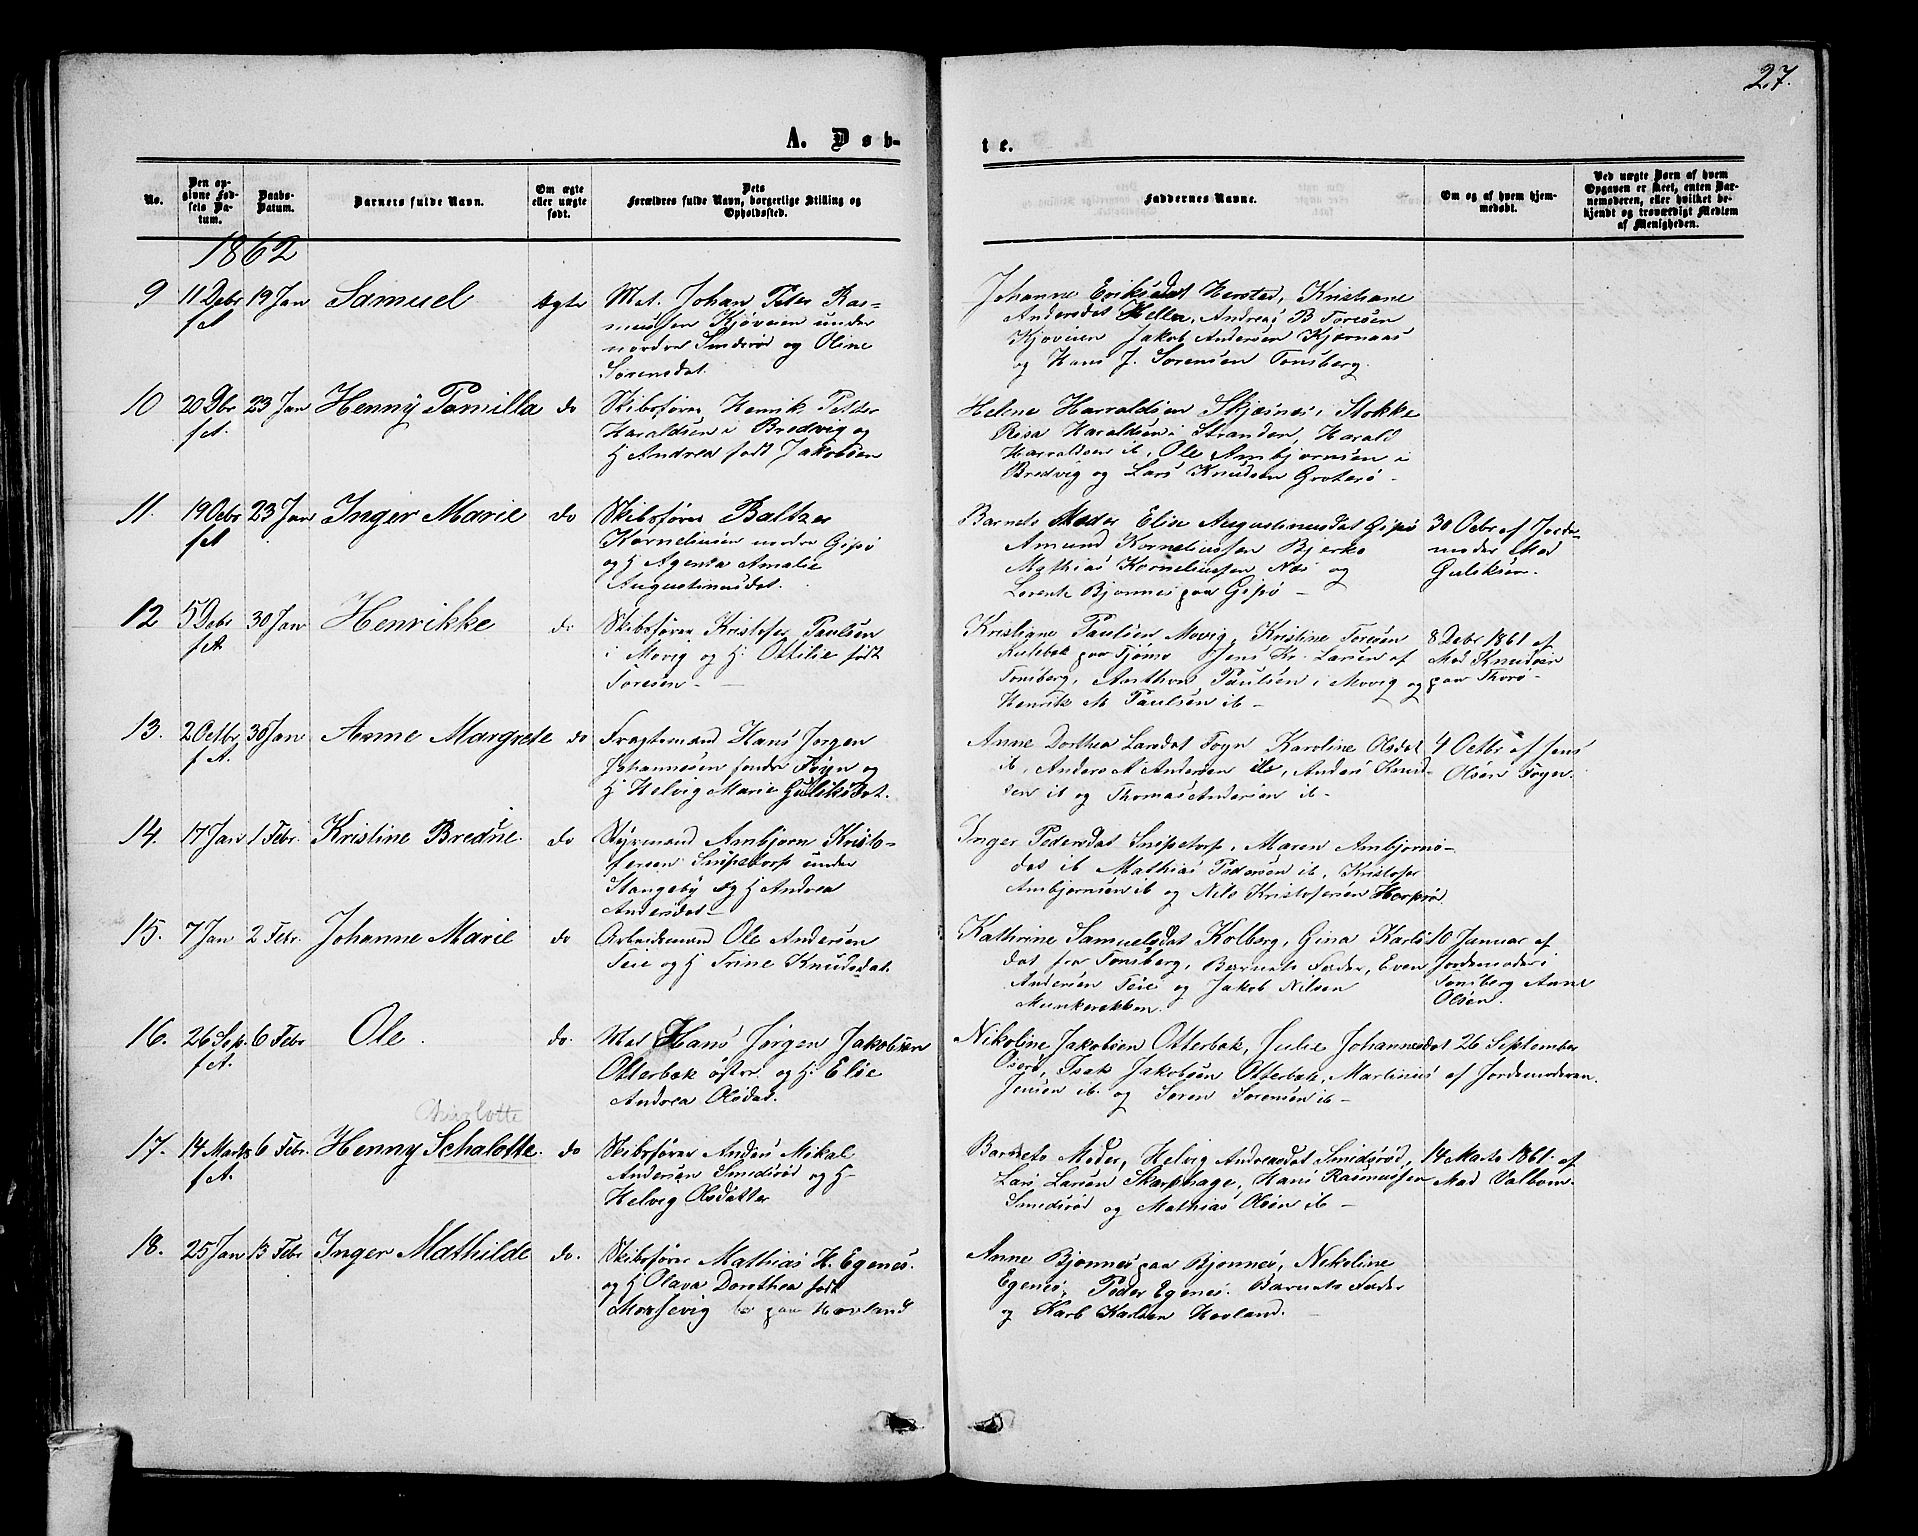 27.
A. Døb-
te.
No.
Den op-
givne Fød-
sels Da-
tum.
Daabs-
Datum.
Barnets fulde Navn.
Om ægte
eller uægte
født.
Dets
Forældres fulde Navn, borgerlige Stilling og
Opholdssted.
Faddernes Navne.
Om og af hvem hjem-
medøbt.
Ved uægte Børn af hvem
Opgaven er skeet, enten Bar-
nemoderen, eller hvilket be-
kjendt og troværdigt Medlem
af Menigheden.
1862
9 11 Debr 19 Jan Samuel ægte Mat. Johan Peter Ras-
f A
mussen Kjøveien under
nordre Smidsrød og Oline
Sørensdat.
Johanne Eriksdat Herstad, Kristiane
Andersdat Hella, Andreas B Toresen
Kjøveien Jakob Andersen Kjærnaas
og Hans J. Sørensen Tønsberg.
10 20 Dbr 23 Jan Henny Pamilla do Skibsfører Henrik Petter
f A.
Haraldsen i Bredvig og
H Andrea født Jakobsen
Helene Harraldsen Skjæsnes i Stokke
Risa Haraldsen i Stranden, Harald
Harraldsen ib, Ole Ambjørnsen i
Bredvig og Lars Knudsen Groterø.
11. 19 Octr 23 Jan Inger Marie do Skibsfører Baltzer
f A
Korneliusen nordre Gipø
og H Agenta Amalie
Augustinusdat.
Barnets Moder Elise Augustinusdat Gipø
Amund Korneliussen Bjerkø
Mathias Korneliussen Næs og
Lorentz Bjønnes paa Gipø –
30 Octr af Jorde-
moder Mad
Guliksen.
12 5 Debr 30 Jan Henrikke do Skibsfører Kristofer Paulsen
f A
i Movig og H. Ottilie født
Toresen –
Kristiane Paulsen Movig, Kristine Toresen
Kulebæk paa Tjømø Jens Kr. Larsen af
Tønsberg, Anthon Paulsen i Movig og
Henrik M Paulsen ib –
8 Debr 1861 af
Mad Knudsen
paa Thorø –
13. 2 Octbr 30 Jan Anne Margrete do Fragtemand Hans Jørgen
f A.
Johannesen søndre Føyn og
H Helvig Marie Guliksdat.
Anne Dorthea Larsdat Føyn Karoline Olsdat
ib, Anders N Andersen ib, Anders Knud-
sen ib og Thomas Andersen ib –
4 Octbr af Jens
Olsen Føyn.
14. 17 Jan 1 Febr. Kristine Bredine do Styrmand Ambjørn Kristo-
fersen Snipetorp under
Stangeby og H Andrea
Andersdat –
Inger Pedersdat Snipetorp, Maren Ambjørns-
dat ib Mathias Pedersen ib, Kristofer
Ambjørnsen ib og Nils Kristofersen Herprø
15. 7 Jan 2 Febr. Johanne Marie do Arbeidsmand Ole Andersen
Teie og H Trine Knudsdat.
Kathrine Samuelsdat Kolberg, Gina Karls-
dat fra Tønsberg, Barnets Fader, Even
Andersen Teie og Jakob Nilsen
Munkerekken.
10 Januar af
Jordemoder i
Tønsberg Anne
Olsen.
16. 26 Sep. 6 Febr Ole do. Mat Hans Jørgen Jakobsen
f A.
Otterbæk østre og H. Elise
Andrea Olsdat.
Nikoline Jakobsen Otterbæk, Julie Johannesdat
Oserø, Isak Jakobsen Otterbæk, Martinius
Jensen ib. og Søren Sørensen ib –
26 September
af Jordemoderen.
Charlotte
17. 14 Marts 6 Febr. Henny Schalotte. do Skibsfører Anders Mikal
f A.
Andersen Smidsrød og H
Helvig Olsdatter
Barnets Moder, Helvig Andreasdat Smidsrød,
Lars Larsen Skarphage, Hans Rasmussen
Smidsrød og Mathias Olsen ib –
14 Marts 1861. af
Mad Valbom.
18. 25 Jan 13 Febr Inger Mathilde do. Skibsfører Mathias H. Egenes.
og H Olava Dorothea født
Morsevig bor paa Hovland
Anne Bjønnes paa Bjønnes, Nikoline
Egenes, Peder Egenes. Barnets Fader
og Karl Karlsen Hovland.